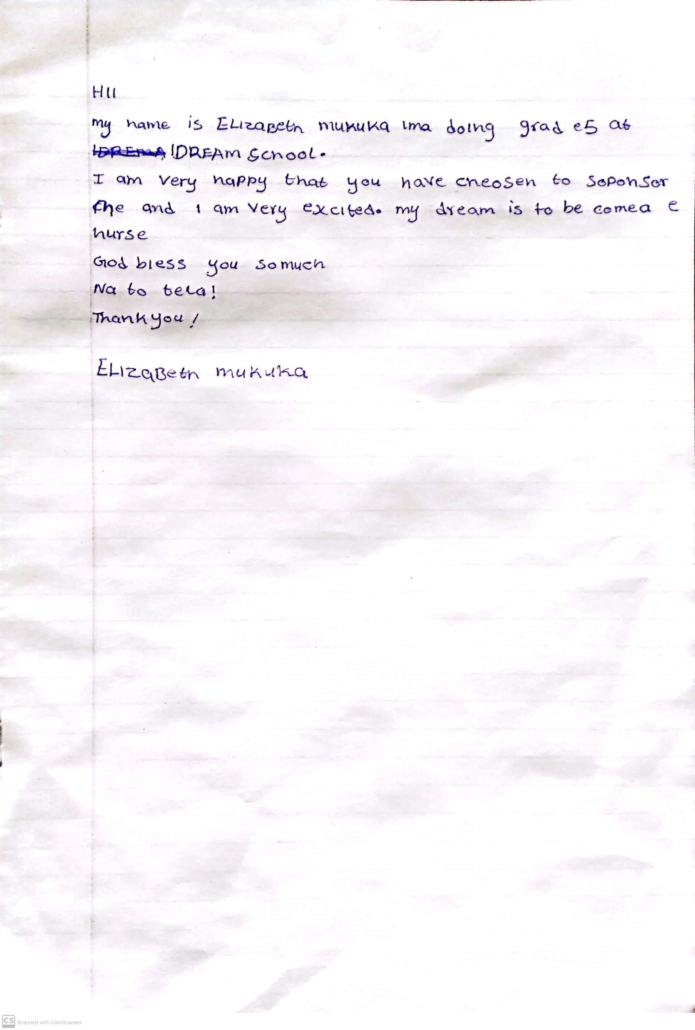 HII
my name is ELIZABETH mukuka ima doing grad e5 at
IDREMA IDREAM School.
I am very happy that you have cheosen to soponsor
me and I am very excited. my dream is to be comea e
nurse
God bless you somuch
Na to tela!
Thankyou!
ELIZABETH mukuka
CS Scanned with CamScanner